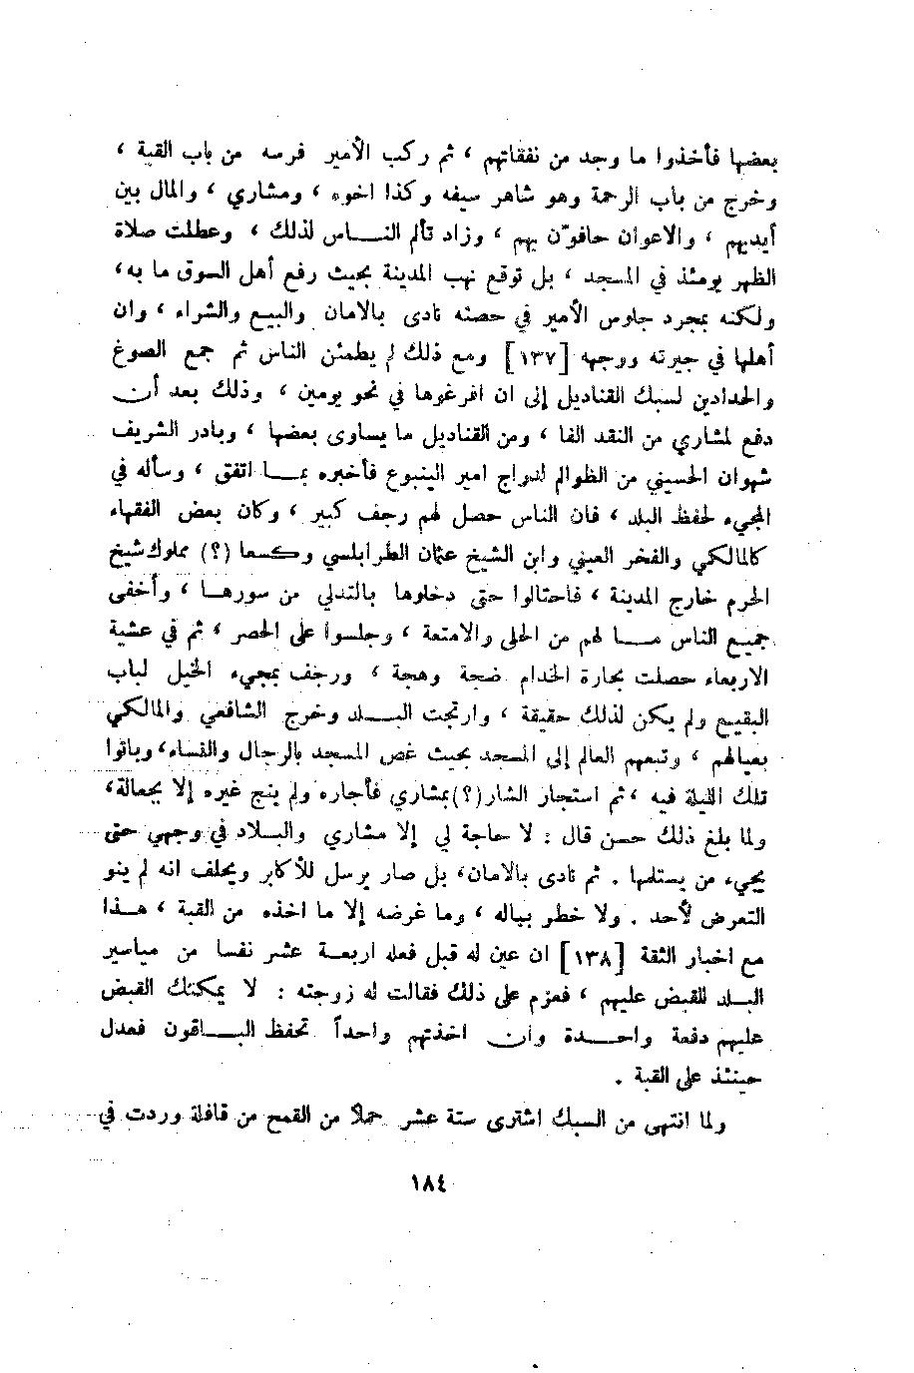 بعضها فأخذوا ما وجد من نفقاتهم ، ثم ركب الأمير فرسه من باب القبة ،
وخرج من باب الرحمة وهو شاهر سيفه وكذا اخوه ، ومشاري ، والمال بين
أيديهم ، والاعوان حافوّن بهم ، وزاد تألم النـاس لذلك ، وعطلت صلاة
الظهر يومئذ في المسجد ، بل توقع نهب المدينة بحيث رفع أهل السوق ما به،
ولكنه بمجرد جلوس الأمير في حصنه نادى بالامان والبيع والشراء ، وان
أهلها في جيرته ووجهه [١٣٧] ومع ذلك لم يطمئن الناس ثم جمع الصوغ
والحدادين لسبك القناديل إلى ان افرغوها في نحو يومين ، وذلك بعد أن
دفع لمشاري من النقد الفا ، ومن القناديل ما يساوى بعضها ، وبادر الشريف
شهوان الحسيني من الظوالم لدراج امير الينبوع فأخبره بمـا اتفق ، وسأله في
المجيء لحفظ البلد ، فان الناس حصل لهم رجف كبير ، وكان بعض الفقهاء
كالمالكي والفخر العيني وابن الشيخ عثمان الطرابلسي وكسعا (؟) مملوك شيخ
الحرم خارج المدينة ، فاحتالوا حتى دخلوها بالتدلي من سورهـا ، وأخفى
جميع الناس مـا لهم من الحلى والامتعة ، وجلسوا على الحصر ، ثم في عشية
الاربعاء حصلت بحارة الخدام ضجة وهجة ، ورجف بمجيء الخيل لباب
البقيع ولم يكن لذلك حقيقة ، وارتجت البـلد وخرج الشافعي والمالكي
بعيالهم ، وتبعهم العالم إلى المسجد بحيث غص المسجد بالرجال والنساء، وباتوا
تلك الليلة فيه ، ثم استجار الشار(؟) بمشاري فأجاره ولم ينج غيره إلا بجعالة،
ولما بلغ ذلك حسن قال : لا حاجة لي إلا مشاري والبـلاد في وجهي حتى
يجيء من يستلمها . ثم نادى بالامان، بل صار يرسل للأكابر ويحلف انه لم ينو
التعرض لأحد . ولا خطر بباله ، وما غرضه إلا ما اخذه من القبة ، هـذا
مع اخبار الثقة [١٣٨] ان عين له قبل فعله اربعـة عشر نفسا من مياسير
البـلد للقبض عليهم ، فعزم على ذلك فقالت له زوجته : لا يمكنك القبض
عليهم دفعة واحـدة وان اخذتهم واحداً تحفظ البـاقون فعدل
حينئذ على القبة .
ولما انتهى من السبك اشترى ستة عشر حملاً من القمح من قافلة وردت في
١٨٤